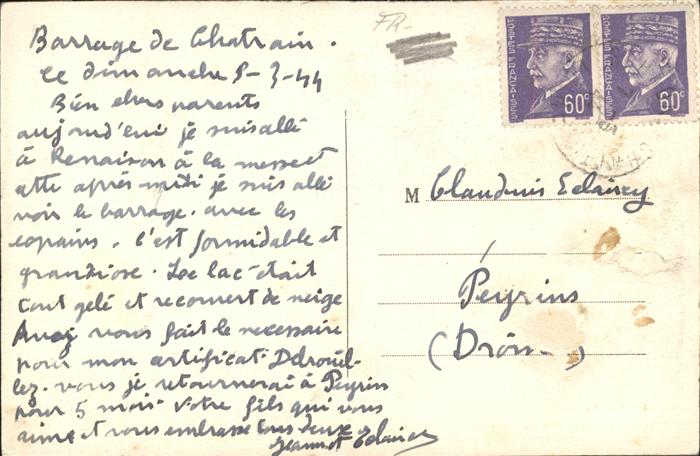 FR-
Barrage de Chatrain.
Ce dimanche 5-3-44
Bien chers parents
aujourd'eui je suis allé
à Renaison à la messe et
cette après-midi je suis allé
voir le barrage. avec les
copains. C'est formidable et
grandiose. Le lac était
tout gelé et recouvert de neige
Avez vous fait le necessaire
pour mon artificat. Debrouil-
lez-vous je retournerai à Peyrins
pour 5 mois. Votre fils qui vous
aime et vous embrasse tous deux
Jeannot
POSTES FRANÇAISES
60c
POSTES FRANÇAISES
60c
M Claudius
Peyrins
(Drôme)